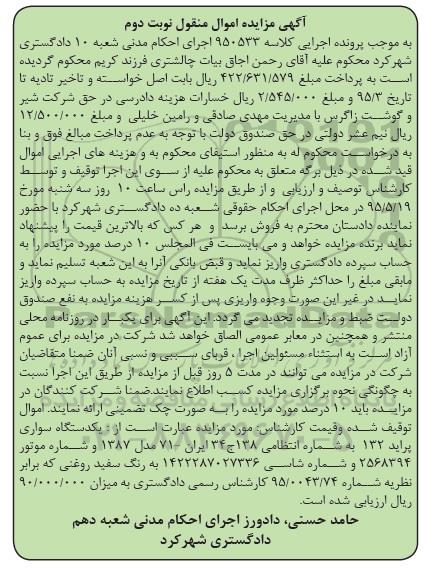 آگهی مزایده اموال منقول نوبت دوم
به موجب پرونده اجرایی کلاسه ۹۵۰۵۳۳ اجرای احکام مدنی شعبه ۱۰ دادگستری
شهرکرد محکوم علیه آقای رحمن اجاق بیات چالشتری فرزند کریم محکوم گردیده
است به پرداخت مبلغ ۴۲۲/۶۳۱/۵۷۹ ریال بابت اصل خواسته و تاخیر تادیه تا
تاریخ ۹۵/۳ و مبلغ ۲/۵۴۵/۰۰۰ ریال خسارات هزینه دادرسی در حق شرکت شیر
و گوشت زاگرس با مدیریت مهدی صادقی و رامین خلیلی و مبلغ ۱۲/۵۰۰/۰۰۰
ریال نیم عشر دولتی در حق صندوق دولت با توجه به عدم پرداخت مبالغ فوق و بنا
به درخواست محکوم له به منظور استیفای محکوم به و هزینه های اجرایی اموال
قید شده در ذیل برگه متعلق به محکوم علیه از سوی این اجرا توقیف و توسط
کارشناس توصیف و ارزیابی و از طریق مزایده راس ساعت ۱۰ روز سه شنبه مورخ
۹۵/۵/۱۹ در محل اجرای احکام حقوقی شعبه ده دادگستری شهرکرد با حضور
نماینده دادستان محترم به فروش برسد و هر کس که بالاترین قیمت را پیشنهاد
نماید برنده مزایده خواهد و می بایست فی المجلس ۱۰ درصد مورد مزایده را به
حساب سپرده دادگستری واریز نماید و قبض بانکی آنرا به این شعبه تسلیم نماید و
مابقی مبلغ را حداکثر ظرف مدت یک هفته از تاریخ مزایده به حساب سپرده واریز
نماید در غیر این صورت وجوه واریزی پس از کسر هزینه مزایده به نفع صندوق
دولت ضبط و مزایده تجدید می گردد این آگهی برای یکبار در روزنامه محلی
منتشر و همچنین در معابر عمومی الصاق خواهد شد شرکت در مزایده برای عموم
آزاد است به استثناء مسئولین اجرا ، قربای سببی و نسبی آنان ضمنا متقاضیان
شرکت در مزایده می توانند در مدت ۵ روز قبل از مزایده از طریق این اجرا نسبت
به چگونگی نحوه برگزاری مزایده کسب اطلاع نمایند.ضمنا شرکت کنندگان در
مزایده باید ۱۰ درصد مورد مزایده را به صورت چک تضمینی ارائه نمایند. اموال
توقیف شده وقیمت کارشناسی مورد مزایده عبارت است از : یکدستگاه سواری
پراید ۱۳۲ به شماره انتظامی ۱۳۸ج۳۴ ایران -۷۱ مدل ۱۳۸۷ و شماره موتور
۲۵۶۸۳۹۴ و شماره شاسی ۱۴۲۲۲۸۷۰۲۷۳۳۶ به رنگ سفید روغنی که برابر
نظریه شماره ۹۵/۰۰۴۳/۷۴ کارشناس رسمی دادگستری به میزان ۹۰/۰۰۰/۰۰۰
ریال ارزیابی شده است.
حامد حسنی، دادورز اجرای احکام مدنی شعبه دهم
دادگستری شهرکرد